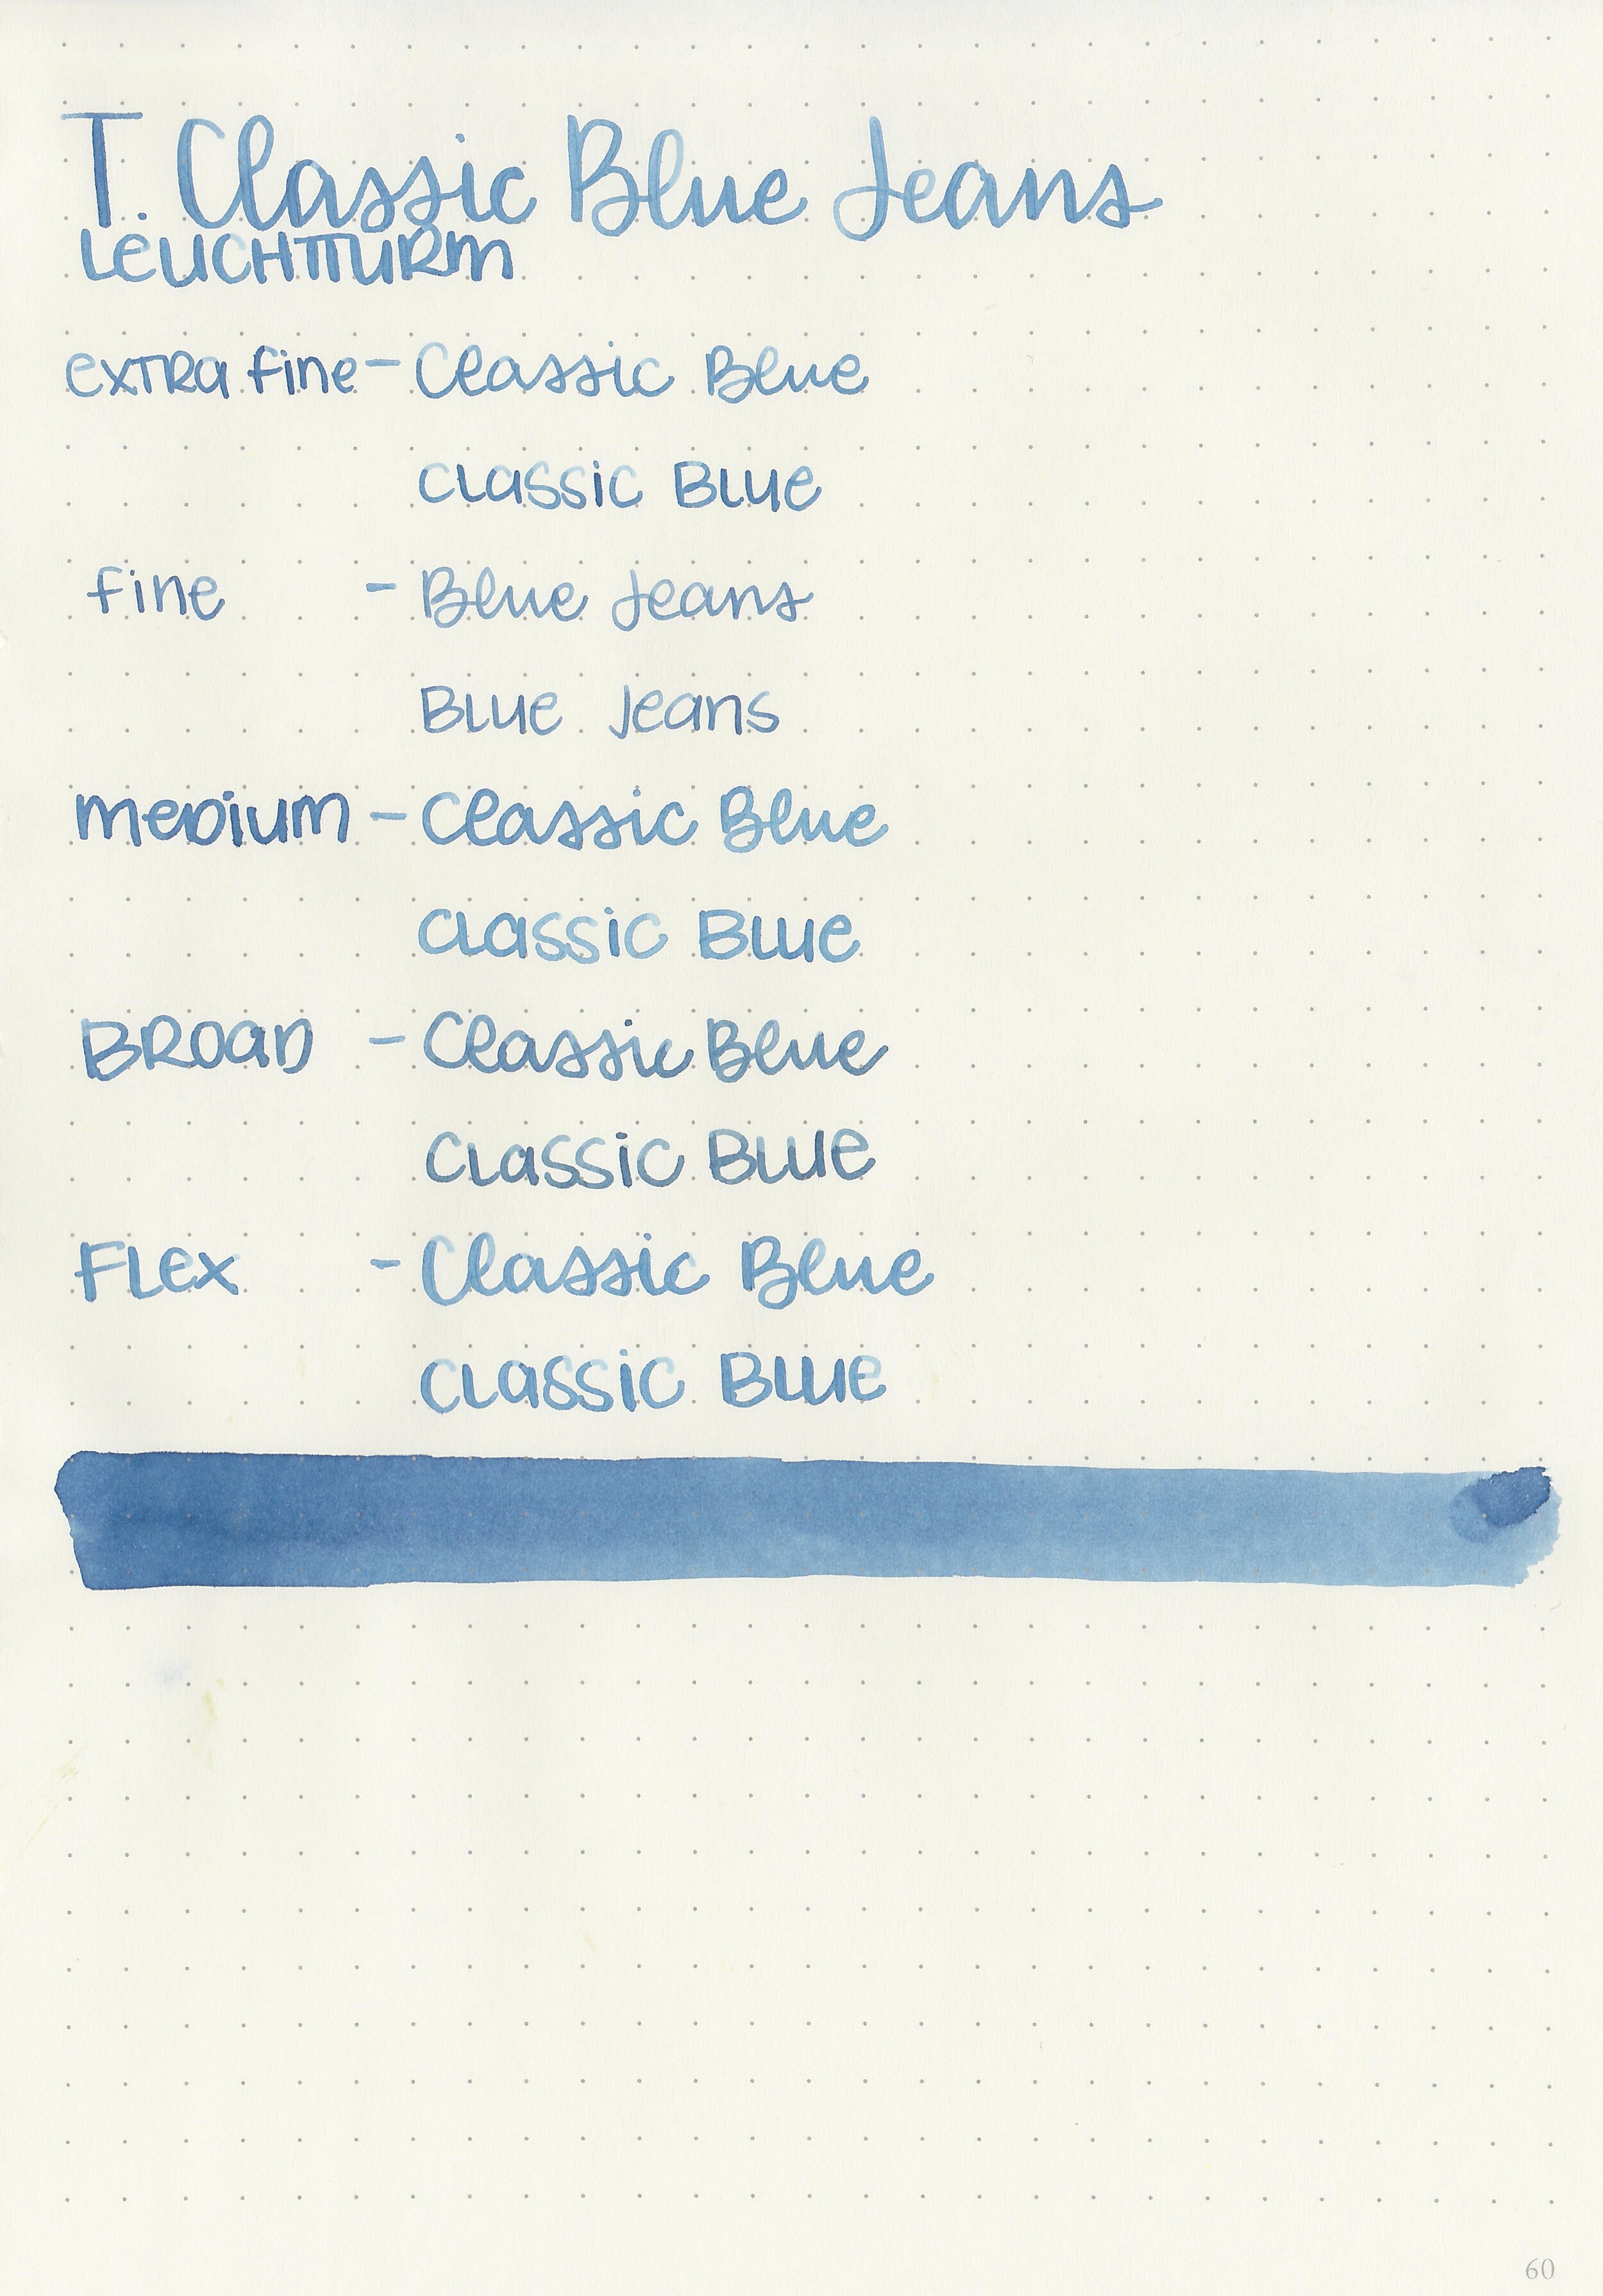 T. Classic Blue Jeans
LEUCHTTURM
extra fine - Classic Blue
Classic Blue
fine - Blue Jeans
Blue Jeans
medium - Classic Blue
Classic Blue
Broad - Classic Blue
Classic Blue
Flex - Classic Blue
Classic Blue
60